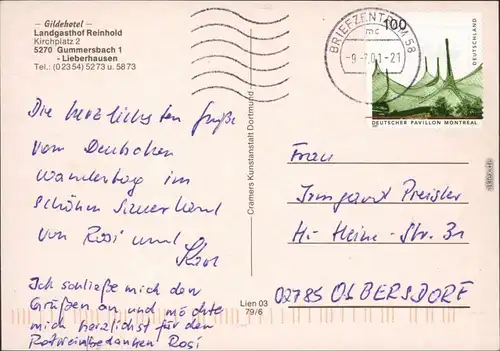 - Gildehotel -
Landgasthof Reinhold
Kirchplatz 2
5270 Gummersbach 1
- Lieberhausen
Tel.: (0 23 54) 52 73 u. 58 73
BRIEFZENTRUM 58
mc
-9.-7.01-21
100
DEUTSCHLAND
DEUTSCHER PAVILLON MONTREAL
Die herzlichsten Grüße
vom Deutschen
Wandertag im
schönen Sauerland
von Rosi und
Ich schließe mich den
Grüßen an und möchte
mich herzlichst für den
bedanken Rosi
Cramers Kunstanstalt Dortmund
Lien 03
79/6
Frau
Irmgard Preisler
H.-Heine-Str. 31
02785 OLBERSDORF